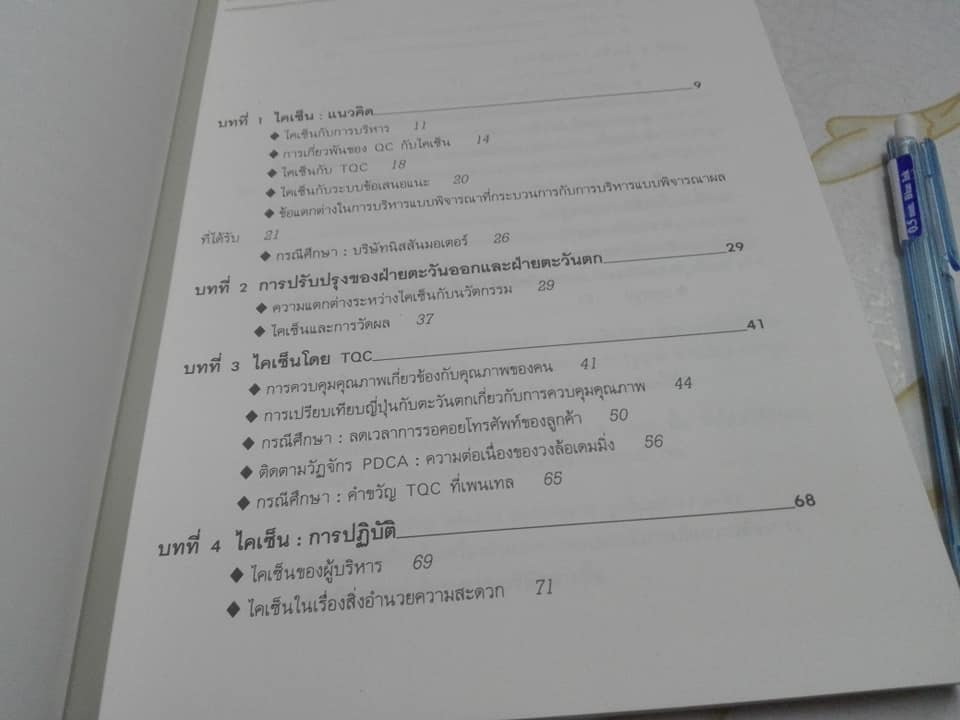 บทที่ 1 ไคเซ็น : แนวคิด 9
◆ ไคเซ็นกับการบริหาร 11
◆ การเกี่ยวพันของ QC กับไคเซ็น 14
◆ ไคเซ็นกับ TQC 18
◆ ไคเซ็นกับระบบข้อเสนอแนะ 20
◆ ข้อแตกต่างในการบริหารแบบพิจารณาที่กระบวนการกับการบริหารแบบพิจารณาผล
ที่ได้รับ 21
◆ กรณีศึกษา : บริษัทนิสสันมอเตอร์ 26
บทที่ 2 การปรับปรุงของฝ่ายตะวันออกและฝ่ายตะวันตก 29
◆ ความแตกต่างระหว่างไคเซ็นกับนวัตกรรม 29
◆ ไคเซ็นและการวัดผล 37
บทที่ 3 ไคเซ็นโดย TQC 41
◆ การควบคุมคุณภาพเกี่ยวข้องกับคุณภาพของคน 41
◆ การเปรียบเทียบญี่ปุ่นกับตะวันตกเกี่ยวกับการควบคุมคุณภาพ 44
◆ กรณีศึกษา : ลดเวลาการรอคอยโทรศัพท์ของลูกค้า 50
◆ ติดตามวัฏจักร PDCA : ความต่อเนื่องของวงล้อเดมมิ่ง 56
◆ กรณีศึกษา : คำขวัญ TQC ที่เพนเทล 65
บทที่ 4 ไคเซ็น : การปฏิบัติ 68
◆ ไคเซ็นของผู้บริหาร 69
◆ ไคเซ็นในเรื่องสิ่งอำนวยความสะดวก 71
0.5